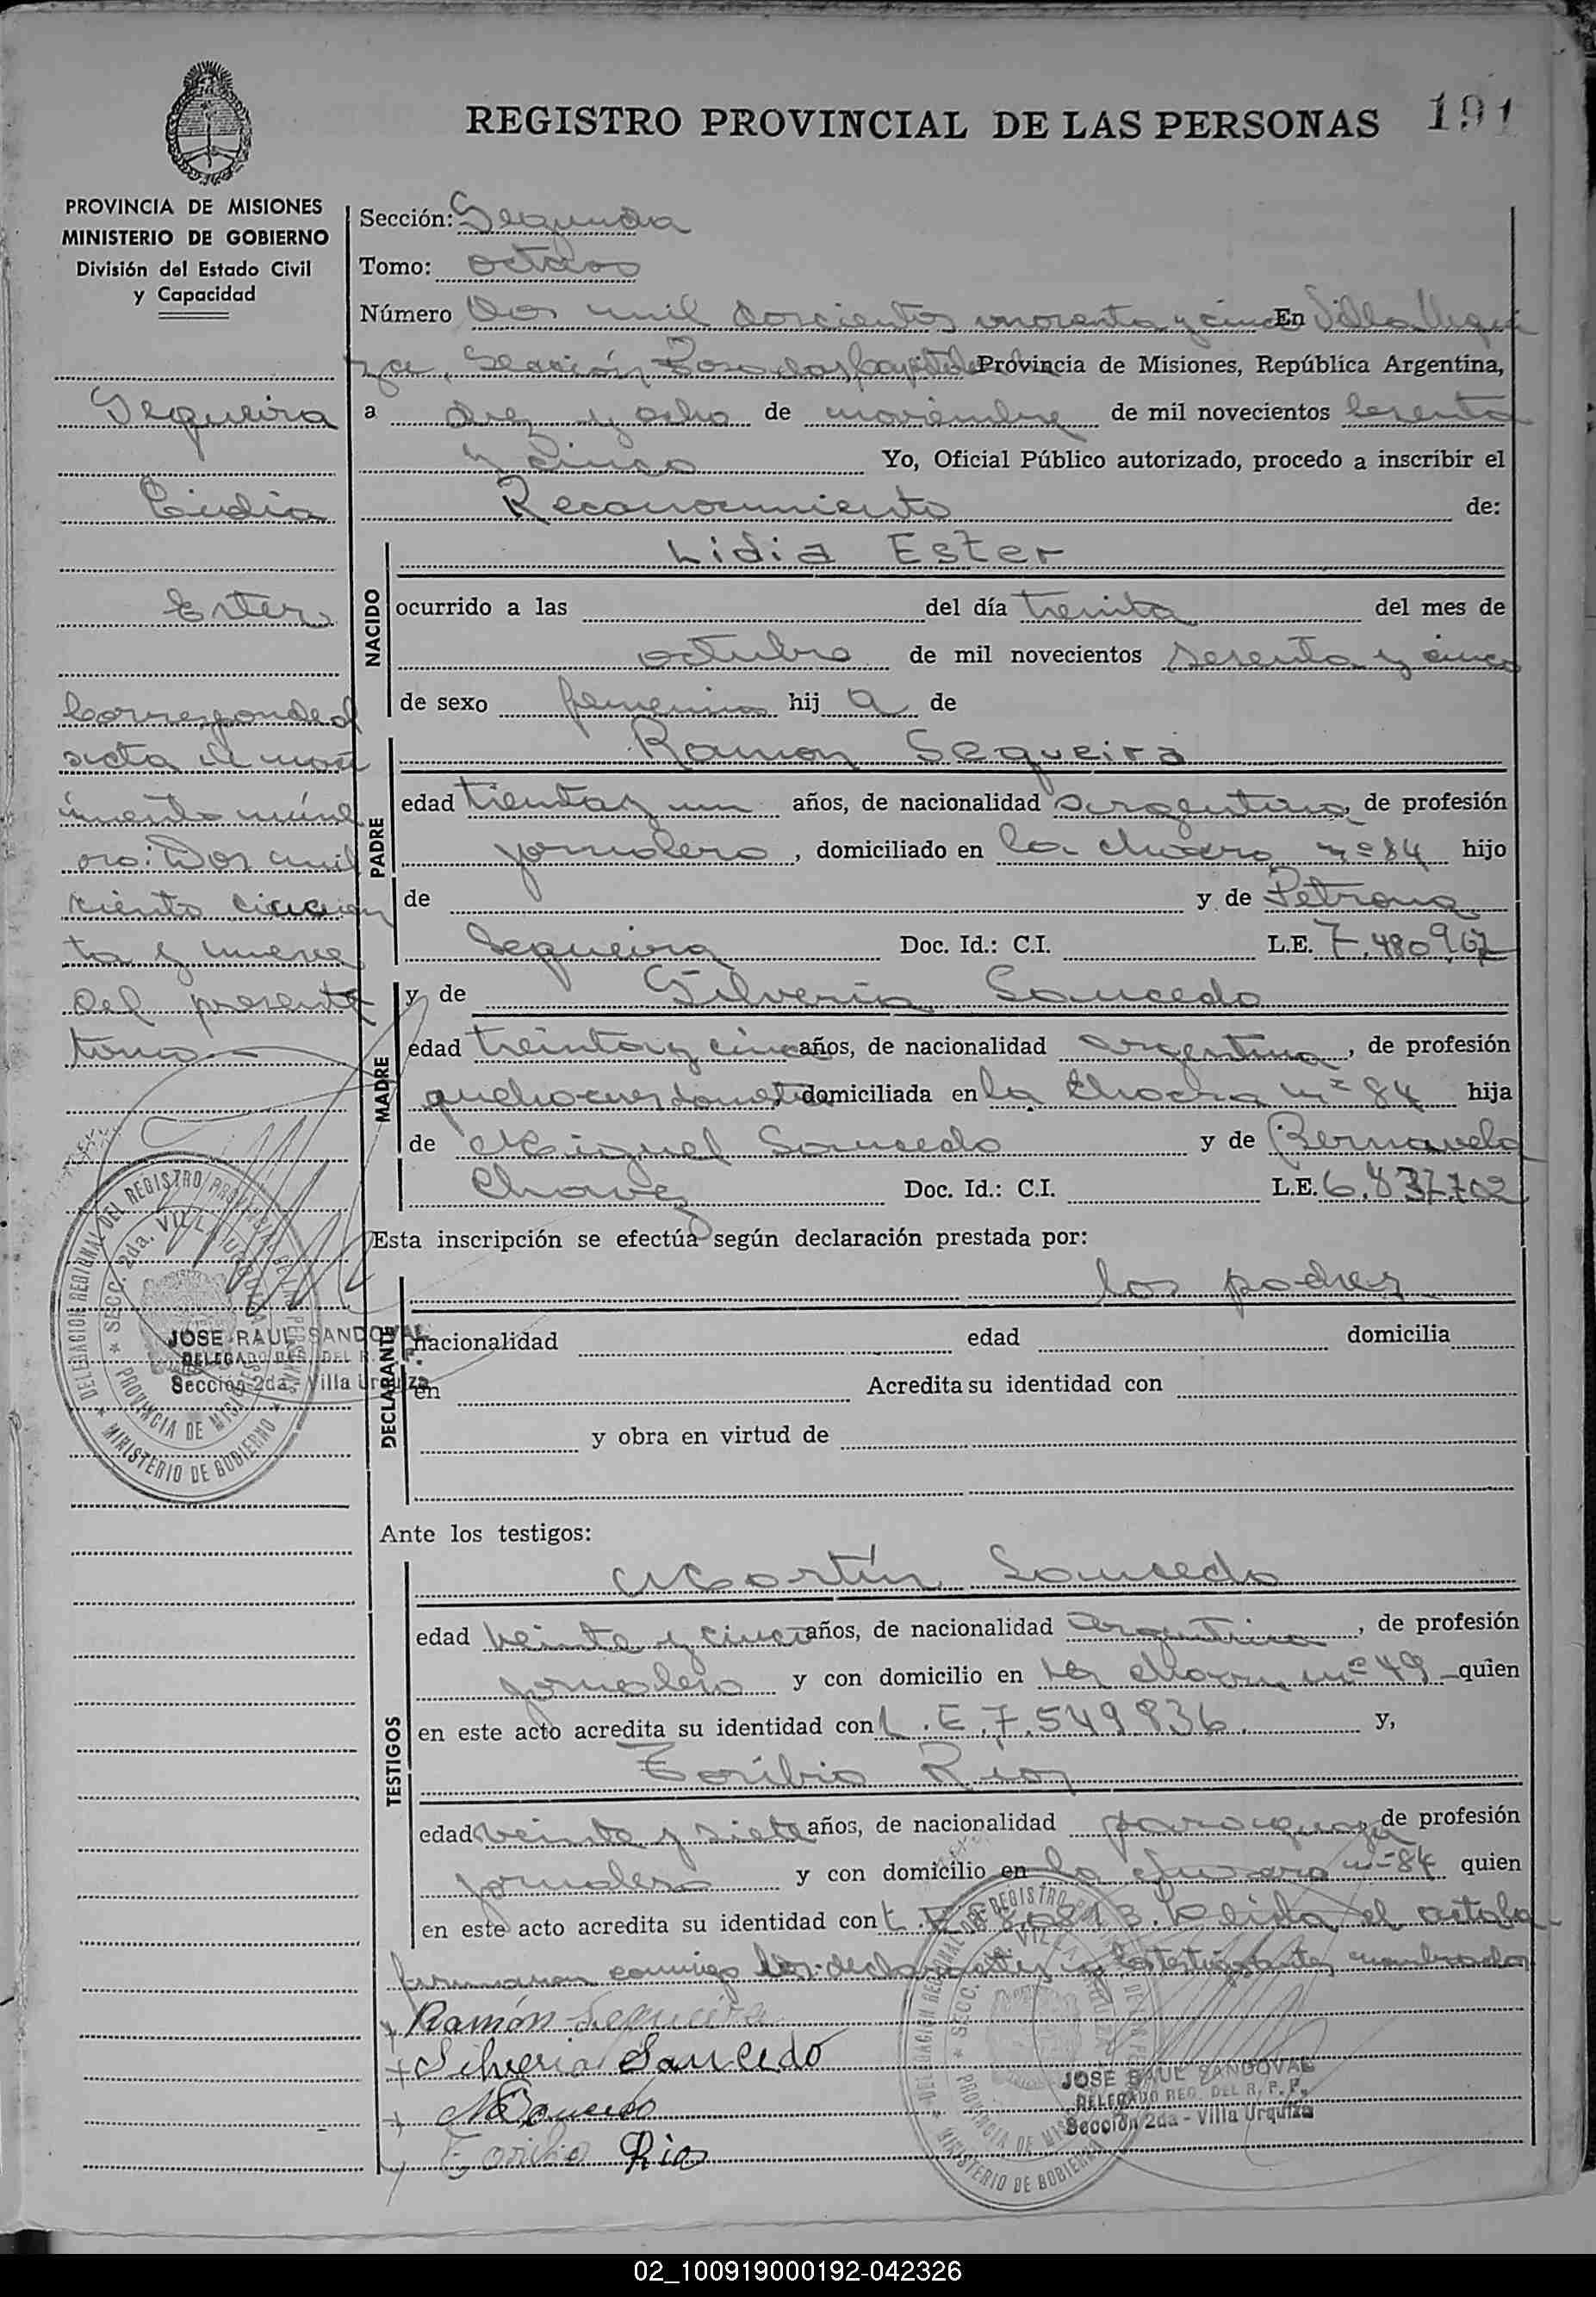 REGISTRO PROVINCIAL DE LAS PERSONAS 191
PROVINCIA DE MISIONES
MINISTERIO DE GOBIERNO
División del Estado Civil
y Capacidad
Sequeira
Lidia
Ester
Corresponde al
acta de naci
miento núme
ro: Dos mil
ciento cincuen
ta y nueve
del presente
tomo
DELEGACION REGIONAL DEL REGISTRO PROVINCIAL DE LAS PERSONAS
SECC. 2da. VILLA URQUIZA
PROVINCIA DE MISIONES
MINISTERIO DE GOBIERNO
JOSE RAUL SANDOVAL
DELEGADO REG. DEL R. P. P.
Sección 2da - Villa Urquiza
Sección: Segunda
Tomo: octavo
Número Dos mil doscientos noventa y cinco En Villa Urqui
za, Sección Posadas, Capital Provincia de Misiones, República Argentina,
a diez y ocho de noviembre de mil novecientos sesenta
y cinco Yo, Oficial Público autorizado, procedo a inscribir el
Reconocimiento de:
NACIDO
Lidia Ester
ocurrido a las del día treinta del mes de
octubre de mil novecientos sesenta y cinco
de sexo femenino hij a de
PADRE
Ramon Sequeira
edad treinta y un años, de nacionalidad argentino, de profesión
jornalero, domiciliado en la chacra nº 84 hijo
de y de Petrona
Sequeira Doc. Id.: C.I. L.E. 7.480.967
MADRE
y de Silveria Saucedo
edad treinta y cinco años, de nacionalidad argentina, de profesión
quehacer domestico, domiciliada en la chacra nº 84 hija
de Miguel Saucedo y de Bernavela
Chavez Doc. Id.: C.I. L.E. 6.837.702
Esta inscripción se efectúa según declaración prestada por:
DECLARANTE
los padres
nacionalidad edad domicilia
en Acredita su identidad con
y obra en virtud de
Ante los testigos:
TESTIGOS
Martín Saucedo
edad veinte y cinco años, de nacionalidad argentina, de profesión
jornalero y con domicilio en la chacra nº 49 quien
en este acto acredita su identidad con L.E.7.549.836. y,
Toribio Rios
edad veinte y siete años, de nacionalidad paraguaya de profesión
jornalero y con domicilio en la chacra nº 84 quien
en este acto acredita su identidad con Leida el acta la
firmaron conmigo los declarantes y los testigos antes nombrados
Ramón Sequeira
Silveria Saucedo
MSaucedo
Toribio Rios
DELEGACION REGIONAL DEL REGISTRO PROVINCIAL DE LAS PERSONAS
SECC. 2da. VILLA URQUIZA
PROVINCIA DE MISIONES
MINISTERIO DE GOBIERNO
JOSE RAUL SANDOVAL
DELEGADO REG. DEL R. P. P.
Sección 2da - Villa Urquiza
02_100919000192-042326